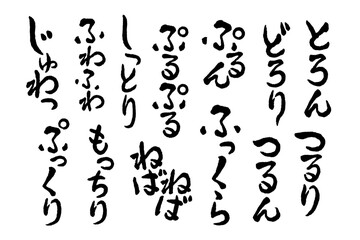 とろん
つるり
どろり
つるん
ぷるん
ふっくら
ぷるぷる
ねばねば
しっとり
もっちり
ふわふわ
じゅわっ
ぷっくり